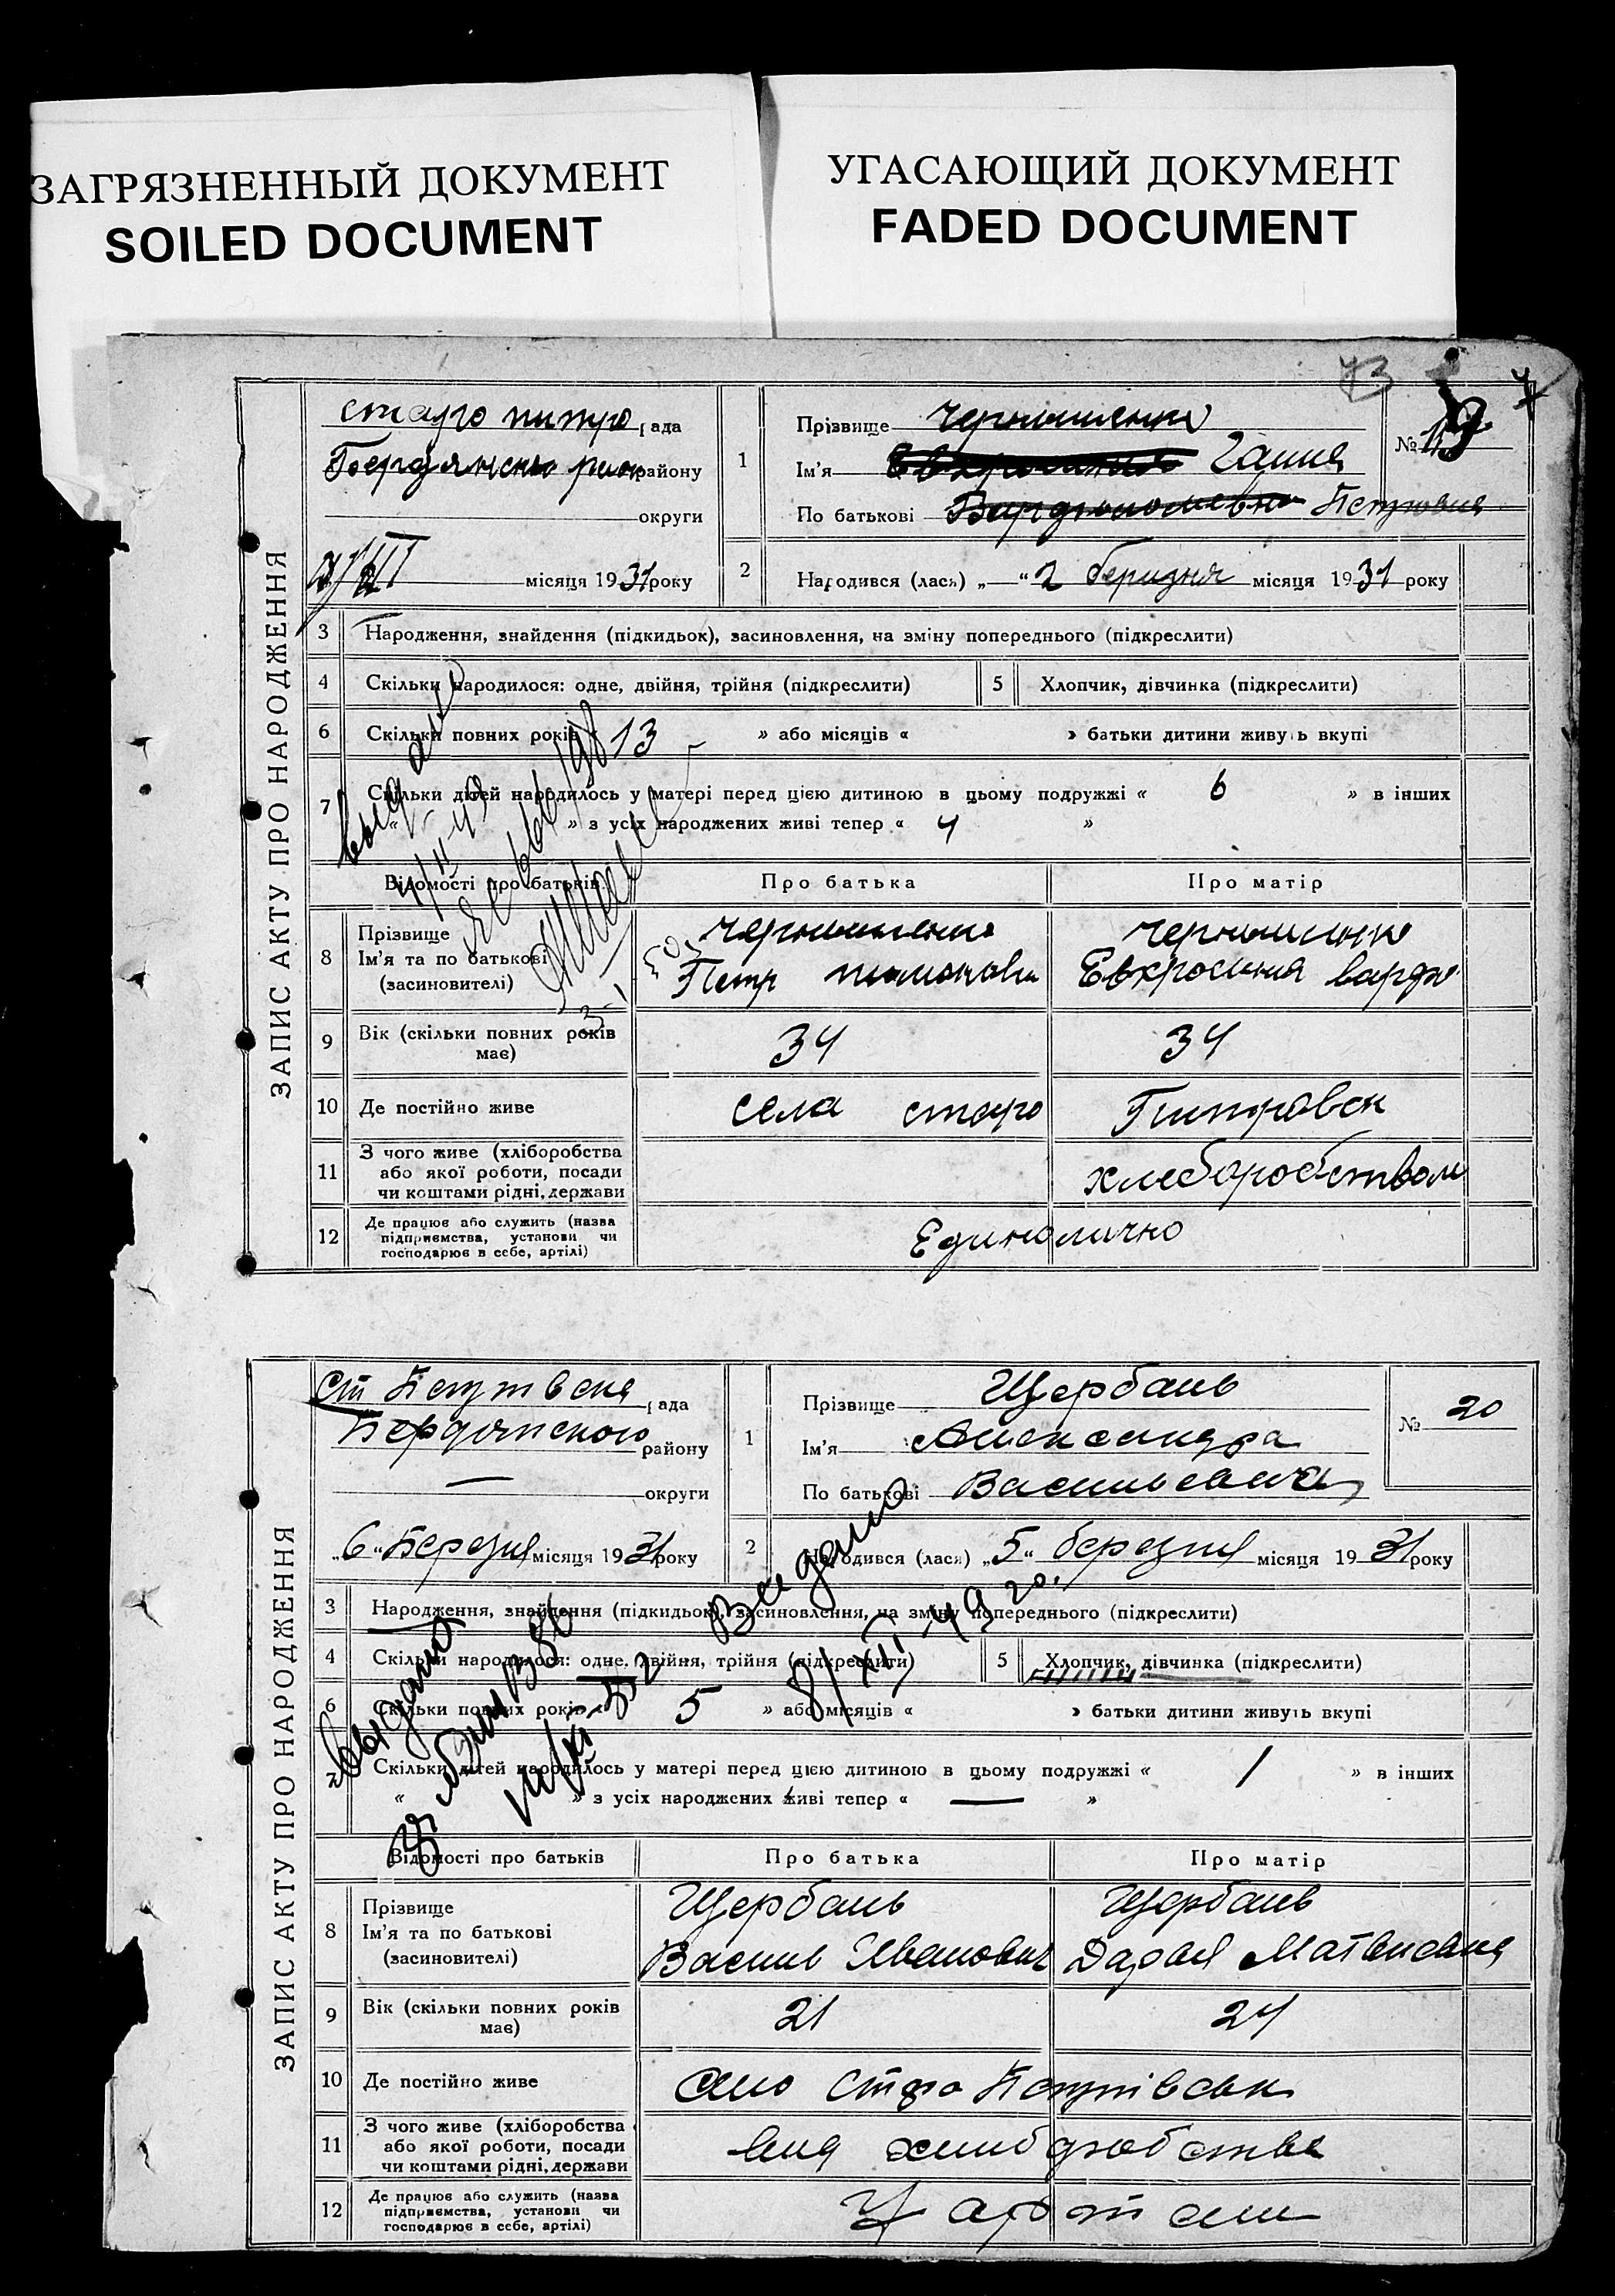 ЗАГРЯЗНЕННЫЙ ДОКУМЕНТ
SOILED DOCUMENT
УГАСАЮЩИЙ ДОКУМЕНТ
FADED DOCUMENT
73
ЗАПИС АКТУ ПРО НАРОДЖЕННЯ
старо питро рада
району
округи
місяця 1931 року
1
Прізвище
№ 19
Ім'я Ганна
По батькові Петровна
2
Народився (лася) „ “ 2 березня місяця 1931 року
3 Народження, знайдення (підкидьок), засиновлення, на зміну попереднього (підкреслити)
4 Скільки народилося: одне, двійня, трійня (підкреслити)
5 Хлопчик, дівчинка (підкреслити)
6 Скільки повних років 13 » або місяців « » батьки дитини живуть вкупі
7 Скільки дітей народилось у матері перед цією дитиною в цьому подружжі « 6 » в інших
« » з усіх народжених живі тепер « 4 »
Відомості про батьків
Про батька
Про матір
8 Прізвище
Ім'я та по батькові
(засиновителі)
Петр
Евхросиния
9 Вік (скільки повних років має)
34
34
10 Де постійно живе
села старо Питровск
11 З чого живе (хліборобства
або якої роботи, посади
чи коштами рідні, держави
хлеборобством
12 Де працює або служить (назва
підприємства, установи чи
господарює в себе, артілі)
Единолично
ЗАПИС АКТУ ПРО НАРОДЖЕННЯ
рада
Бердянського району
— округи
„6“ Березня місяця 1931 року
1
Прізвище Щербань
№ 20
Ім'я Александра
По батькові
2
Народився (лася) „5“ березня місяця 1931 року
3 Народження, знайдення (підкидьок), засиновлення, на зміну попереднього (підкреслити)
4 Скільки народилося: одне, двійня, трійня (підкреслити)
5 Хлопчик, дівчинка (підкреслити)
6 Скільки повних років 5 » або місяців « » батьки дитини живуть вкупі
7 Скільки дітей народилось у матері перед цією дитиною в цьому подружжі « 1 » в інших
« » з усіх народжених живі тепер « — »
Видано
8/XII 49 го.
Відомості про батьків
Про батька
Про матір
8 Прізвище
Ім'я та по батькові
(засиновителі)
Щербань
Василь Иванович
Щербань
Дарья Матвиевна
9 Вік (скільки повних років має)
21
24
10 Де постійно живе
село Старо Петрівськ
11 З чого живе (хліборобства
або якої роботи, посади
чи коштами рідні, держави
12 Де працює або служить (назва
підприємства, установи чи
господарює в себе, артілі)
У артели